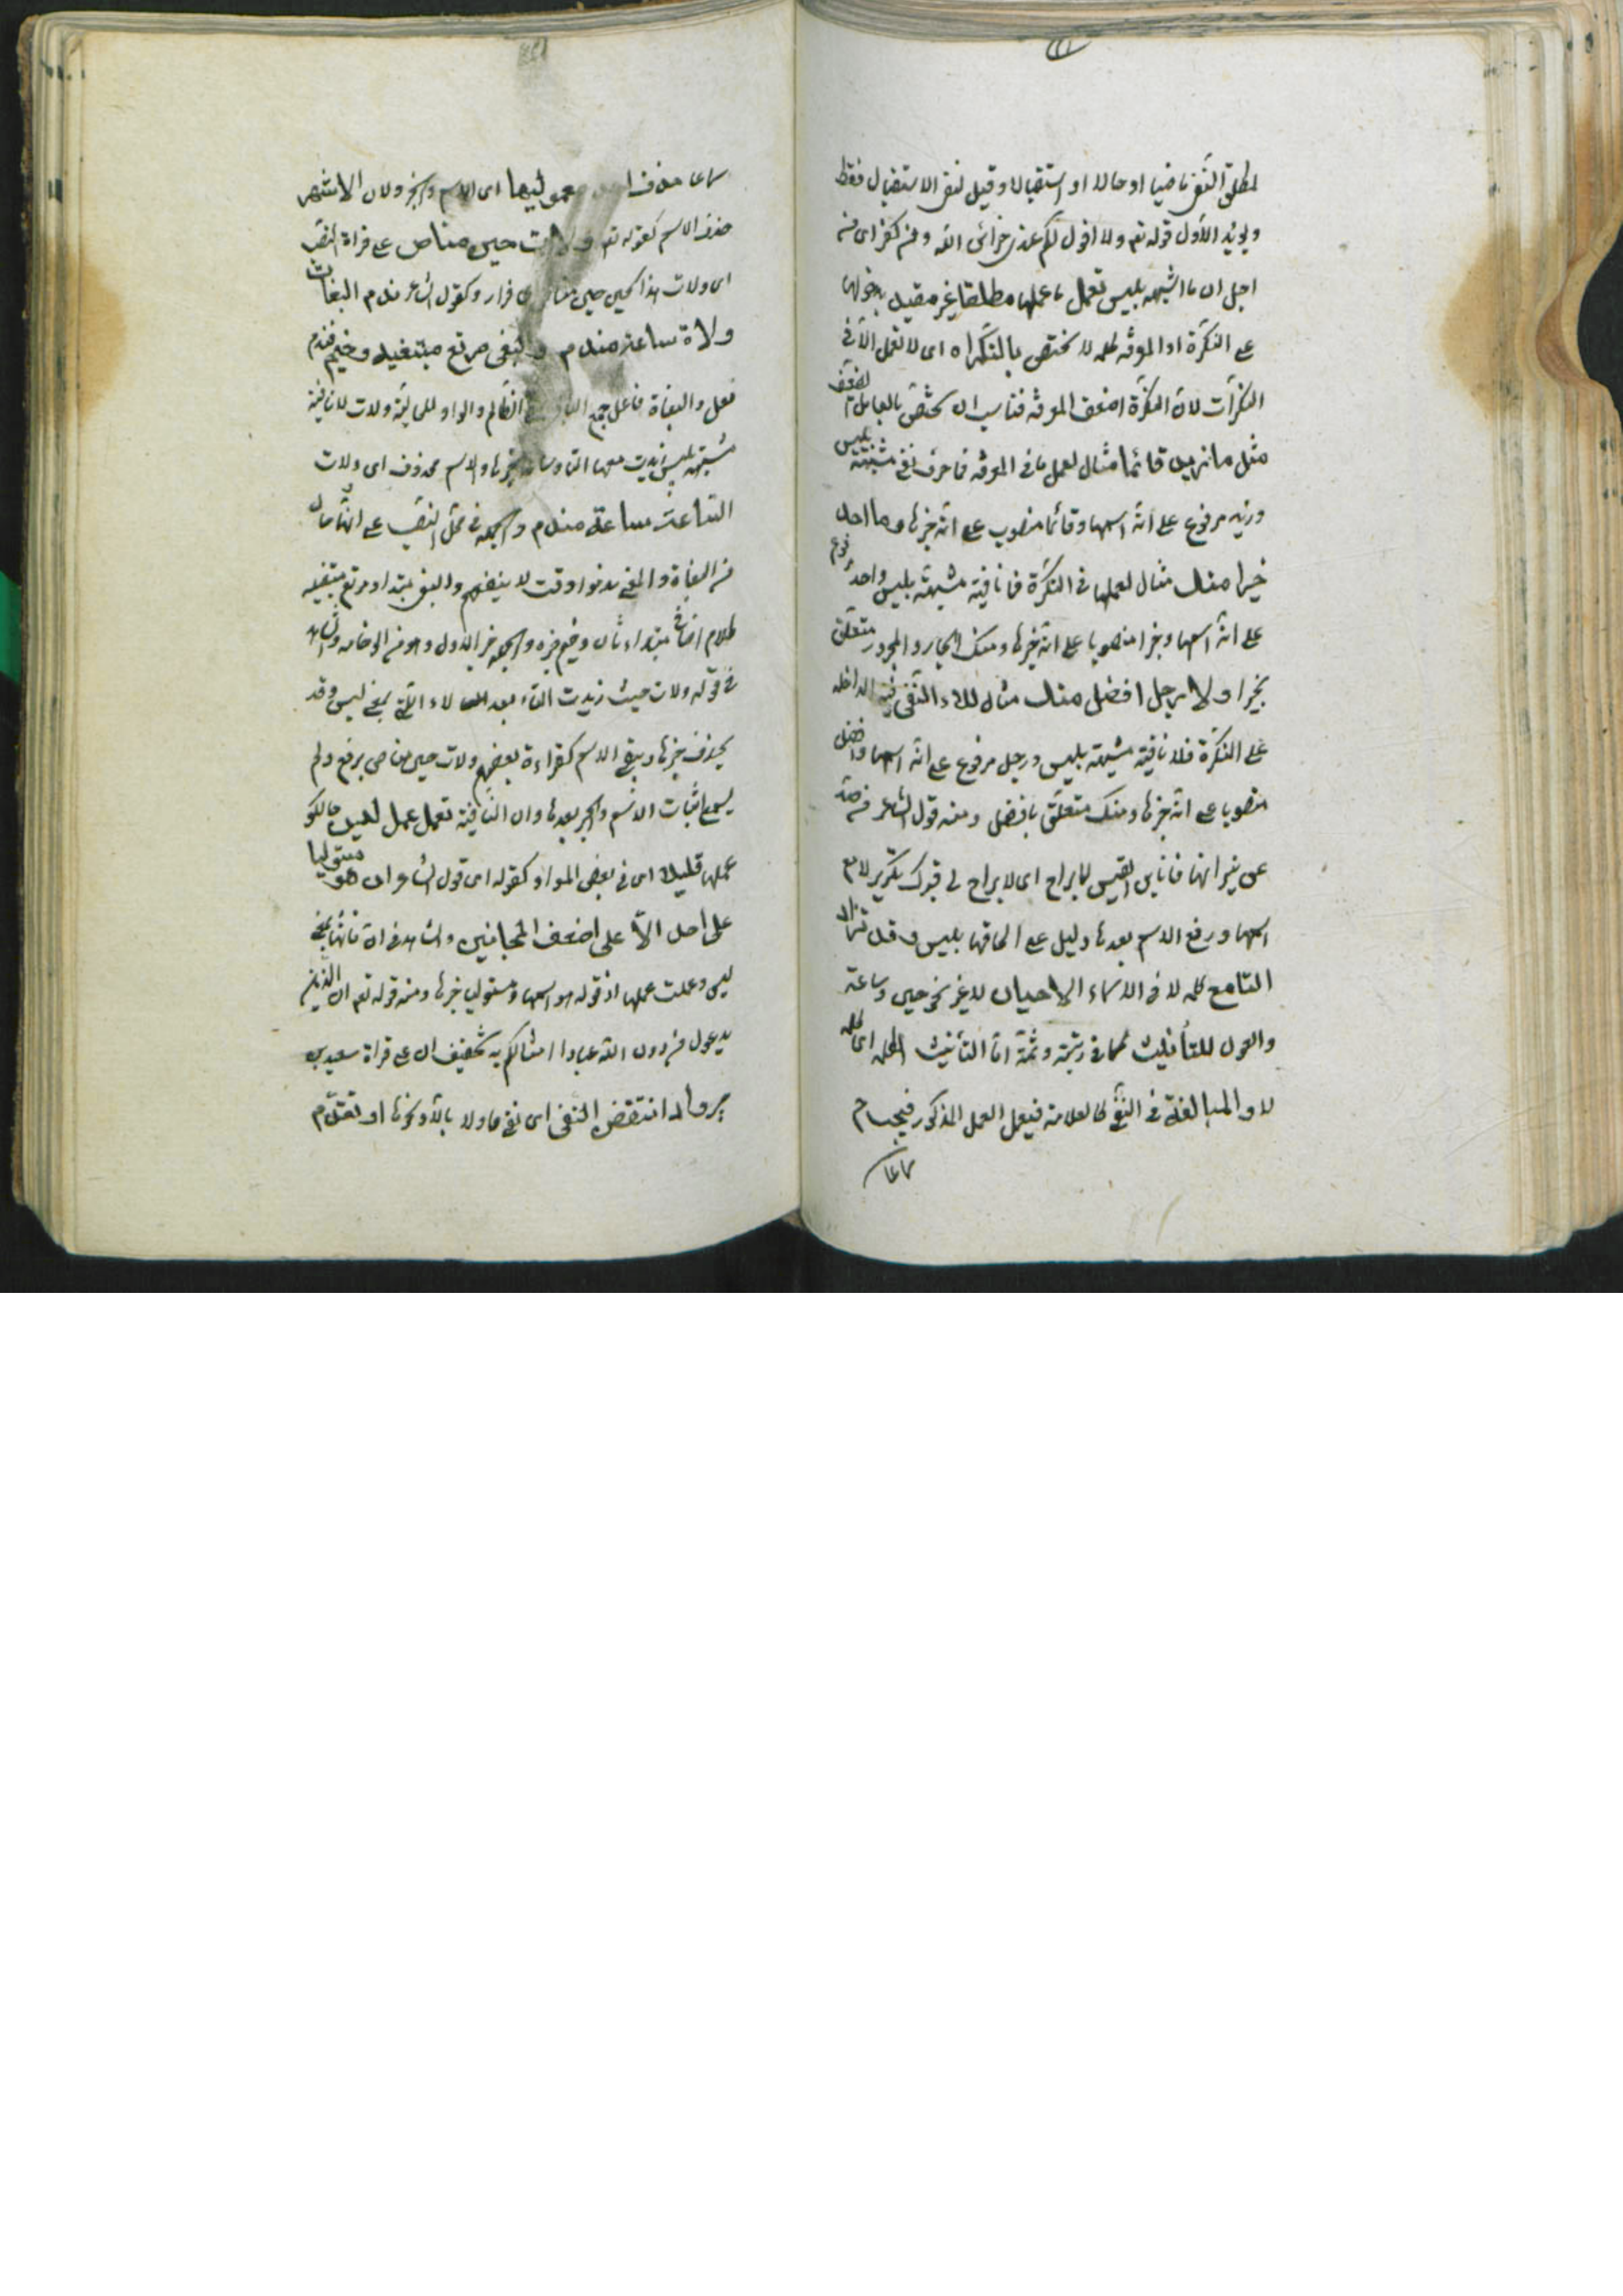 لمطلق النفى ماضيا او حالا او استقبالا وقيل لنفى الاستقبال فقط
ويؤيد الاول قوله تع ولا اقول لكم عندى خزائن الله ومن كفر اى من
اجل ان ما اشبهه بليس تعمل ما عملها مطلقا غير مقيد بدخولها
على النكرة او المعرفه كلمه لا تختص بالنكراه اى لا تعمل الا فى
النكرات لان النكرة اضعف المعرفه فناسب ان تختص بالعامل الضعف
مثل ما زيد قائما مثال لعمل ما فى المعرفه فما حرف نفى مشبهة بليس
وزيد مرفوع على انه اسمها وقائما منصوب على انه خبرها وما احد
خيرا منك مثال لعملها فى النكرة فما نافية مشبهة بليس واحد مرفوع
على انه اسمها وخيرا منصوبا على انه خبرها ومنك الجار والمجرور متعلق
بخيرا ولا رجل افضل منك مثال للاء النفى الداخله
على النكرة فلا نافية مشبهة بليس ورجل مرفوع على انه اسمها وافضل
منصوبا على انه خبرها ومنك متعلق بافضل ومنه قول الشاعر من صد
عن نيرانها فانا ابن القيس لا براح اى لا براح لى فترك تكرير لا مع
اسمها ورفع الاسم بعدها دليل على الحاقها بليس وقد تزاد
التا مع كلمه لا فى الاسماء الاحيان لا غير نحو حين وساعة
والقول للتأنيث كما فى ربة وثمة اما التأنيث الكلمه اى كلمه
لا والمبالغة فى النفى كالعلامة فيعمل العمل المذكور فيجب ح
سماعا
سماعا حذف احد معموليها اى الاسم والخبر ولان الاشهر
حذف الاسم كقوله تع ولات حين مناص على قراة النصب
اى ولات هذا الحين حين مناص اى فرار وكقول الشاعر ندم البغاة
ولاة ساعة مندم والبغى مرتع مبتغيه وخيم فندم
فعل والبغاة فاعل جمع الباغى الظالم والواو للحالية ولات لا نافية
مشبهة بليس زيدت معها التا وساعة خبرها والاسم محذوف اى ولات
الساعة ساعة مندم والجمله فى محل النصب على انها حال
من البغاة والمعنى ندموا وقت لا ينفعهم والبغى مبتدا ومرتع مبتغيه
كلام اضافى مبتداء ثان وخيم خبره والجمله خبر الاول وهو من الوخامه والشاهد
فى قوله ولات حيث زيدت التاء بعد لاء التى بمعنى ليس وقد
يحذف خبرها ويبقى الاسم كقراءة بعضهم ولات حين مناص برفع ولم
يسمع اثبات الاسم والخبر بعدها وان النافية تعمل عمل ليس حالكو
عملها قليلا اى فى بعض المواد كقوله اى قول الشاعر ان هو مستوليا
على احد الا على اضعف المجانين والشاهد فى ان فانها بمعنى
ليس وعملت عملها اذ قوله هو اسمها ومستوليا خبرها ومنه قوله تع ان الذين
يدعون من دون الله عبادا امثالكم بتخفيف ان على قراة سعيد بن
جبير وان انتقض النفى اى نفى ما ولا بالا ونحوها او تقدم